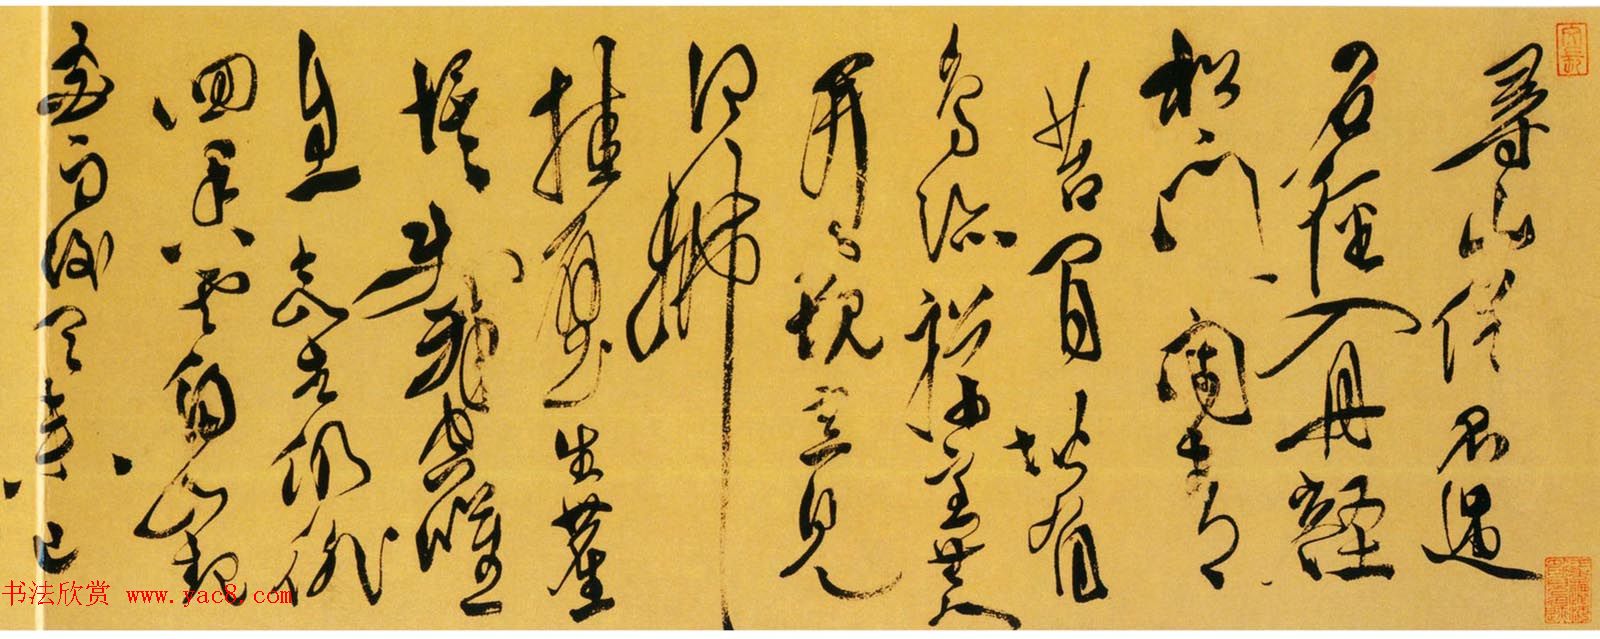 尋山僧不遇
石徑入丹壑
松門閉青
苔閒階有
鳥跡禪室無人
開窺窗見
白拂
挂壁生塵
埃使我空歎
息欲去仍徘
徊香雲遍山起
花雨從天來已
书法欣赏 www.yac8.com